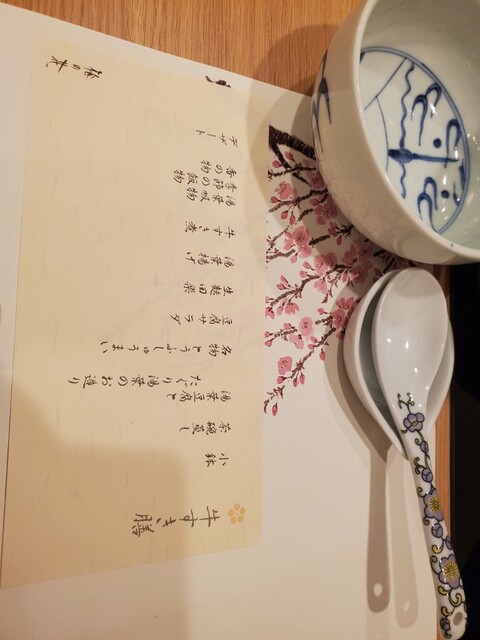 牛すき膳
小鉢
茶碗蒸し
湯葉豆腐と
たぐり湯葉のお造り
名物 とうふしゅうまい
豆腐サラダ
生麩田楽
湯葉揚げ
牛すき煮
湯葉吸物
季節の飯物
香の物
デザート
梅の花